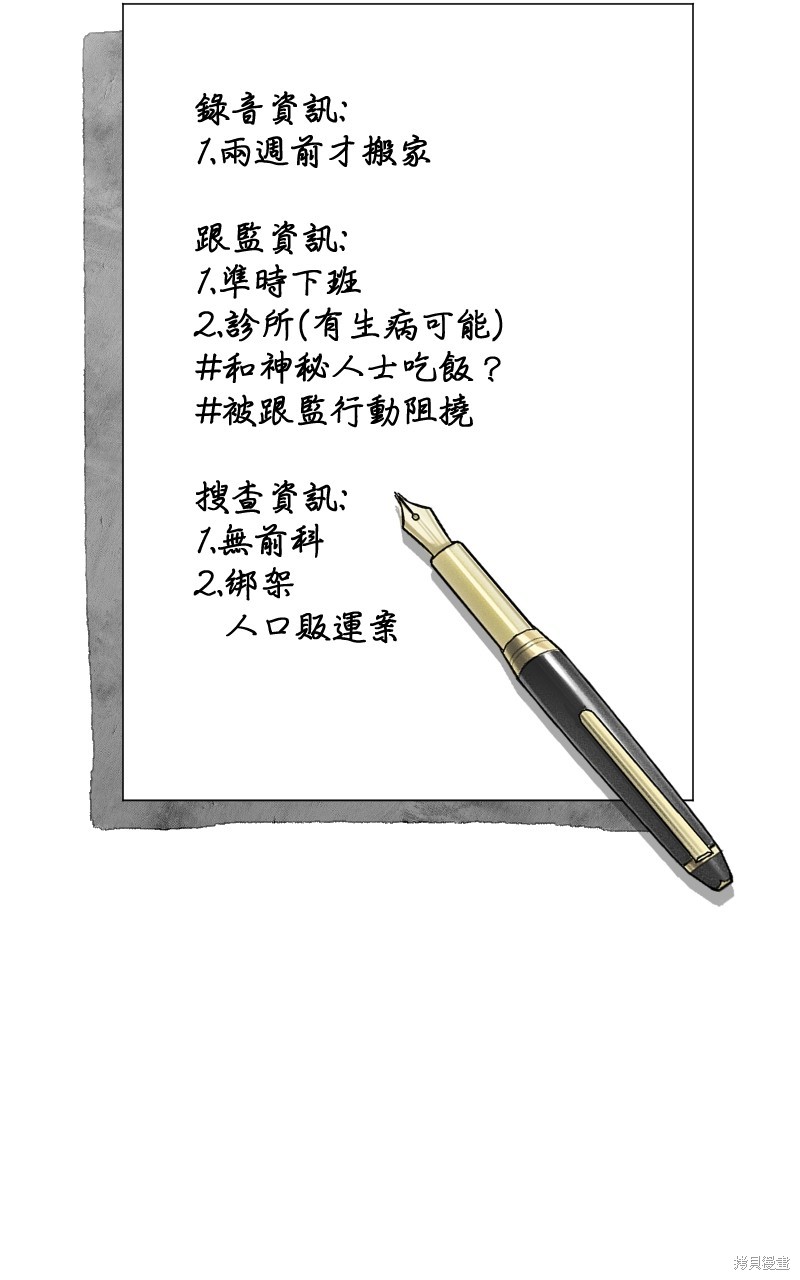 錄音資訊:
1.兩週前才搬家
跟監資訊:
1.準時下班
2.診所(有生病可能)
#和神秘人士吃飯?
#被跟監行動阻撓
搜查資訊:
1.無前科
2.綁架
人口販運案
拷貝漫畫